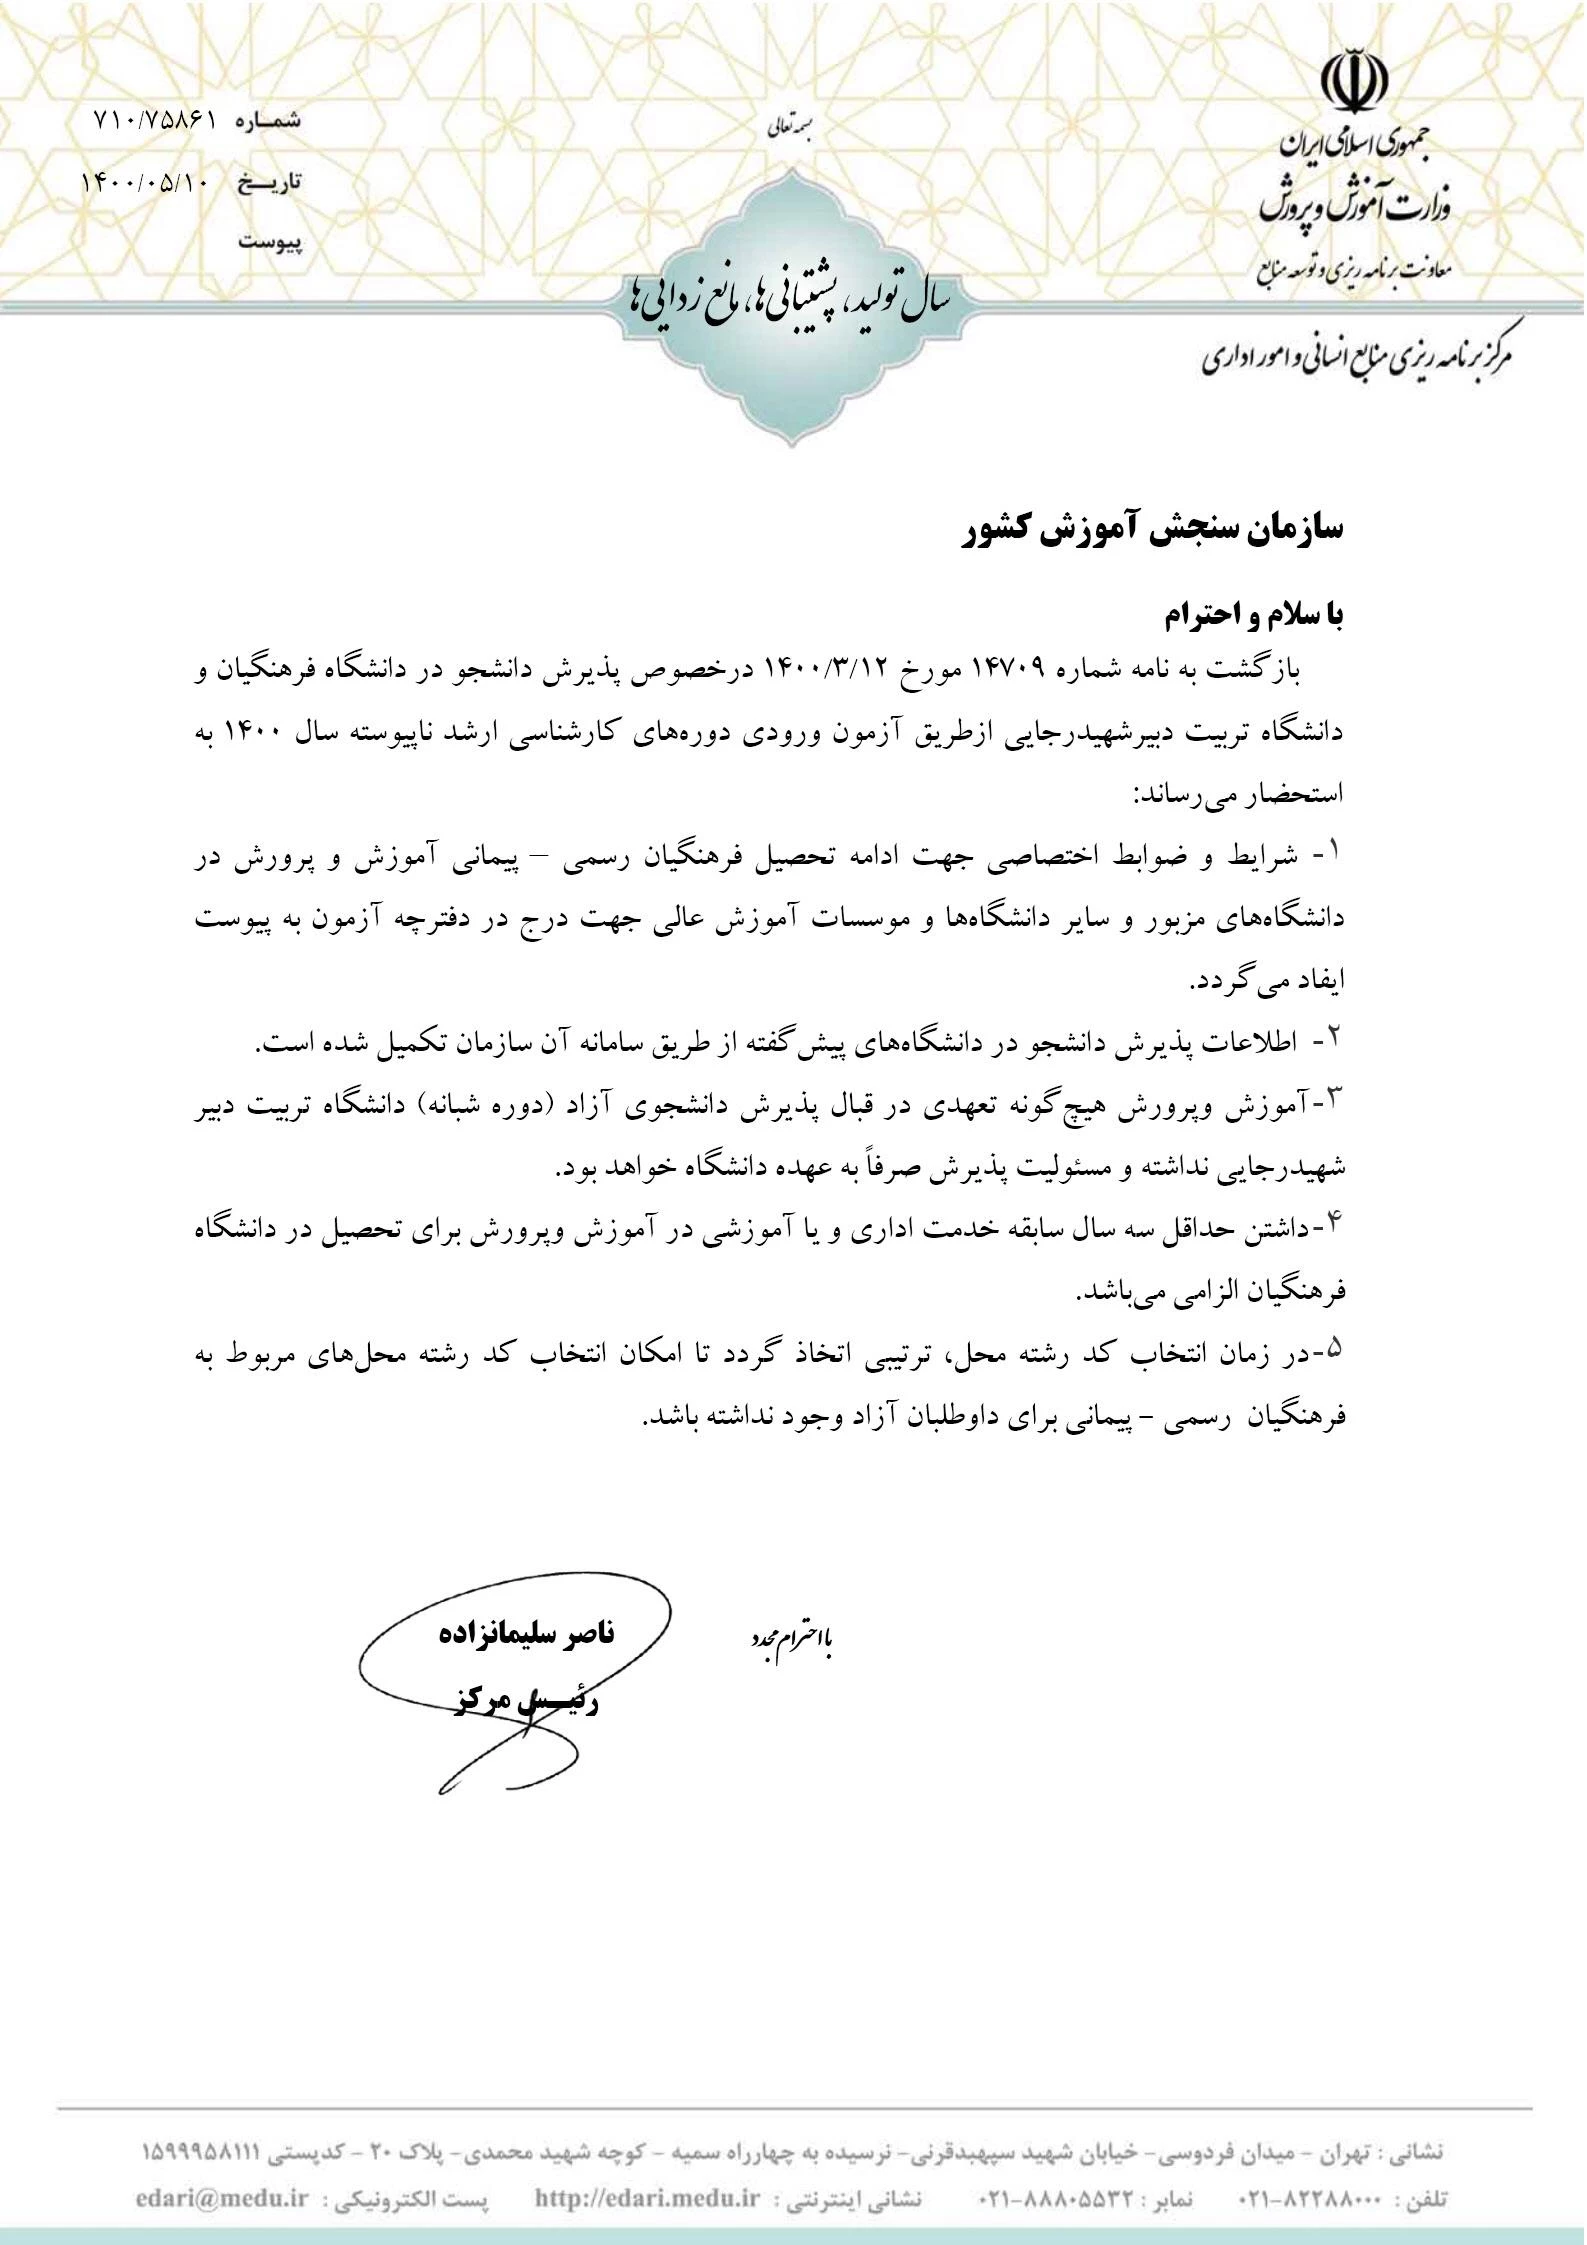 جمهوری اسلامی ایران
وزارت آموزش و پرورش
معاونت برنامه ریزی و توسعه منابع
مرکز برنامه ریزی منابع انسانی و امور اداری
بسمه تعالی
سال تولید، پشتیبانی ها، مانع زدایی ها
شمـاره ۷۱۰/۷۵۸۶۱
تاریـخ ۱۴۰۰/۰۵/۱۰
پیوست
سازمان سنجش آموزش کشور
با سلام و احترام
بازگشت به نامه شماره ۱۴۷۰۹ مورخ ۱۴۰۰/۳/۱۲ درخصوص پذیرش دانشجو در دانشگاه فرهنگیان و
دانشگاه تربیت دبیرشهیدرجایی ازطریق آزمون ورودی دوره‌های کارشناسی ارشد ناپیوسته سال ۱۴۰۰ به
استحضار می‌رساند:
۱- شرایط و ضوابط اختصاصی جهت ادامه تحصیل فرهنگیان رسمی – پیمانی آموزش و پرورش در
دانشگاه‌های مزبور و سایر دانشگاه‌ها و موسسات آموزش عالی جهت درج در دفترچه آزمون به پیوست
ایفاد می‌گردد.
۲- اطلاعات پذیرش دانشجو در دانشگاه‌های پیش‌گفته از طریق سامانه آن سازمان تکمیل شده است.
۳-آموزش وپرورش هیچ‌گونه تعهدی در قبال پذیرش دانشجوی آزاد (دوره شبانه) دانشگاه تربیت دبیر
شهیدرجایی نداشته و مسئولیت پذیرش صرفاً به عهده دانشگاه خواهد بود.
۴-داشتن حداقل سه سال سابقه خدمت اداری و یا آموزشی در آموزش وپرورش برای تحصیل در دانشگاه
فرهنگیان الزامی می‌باشد.
۵-در زمان انتخاب کد رشته محل، ترتیبی اتخاذ گردد تا امکان انتخاب کد رشته محل‌های مربوط به
فرهنگیان رسمی – پیمانی برای داوطلبان آزاد وجود نداشته باشد.
با احترام مجدد
ناصر سلیمانزاده
رئیــس مرکز
نشانی : تهران – میدان فردوسی– خیابان شهید سپهبدقرنی– نرسیده به چهارراه سمیه – کوچه شهید محمدی– پلاک ۲۰ – کدپستی ۱۵۹۹۹۵۸۱۱۱
تلفن : ۸۲۲۸۸۰۰۰–۰۲۱ نمابر : ۸۸۸۰۵۵۳۲–۰۲۱ نشانی اینترنتی : http://edari.medu.ir پست الکترونیکی : edari@medu.ir